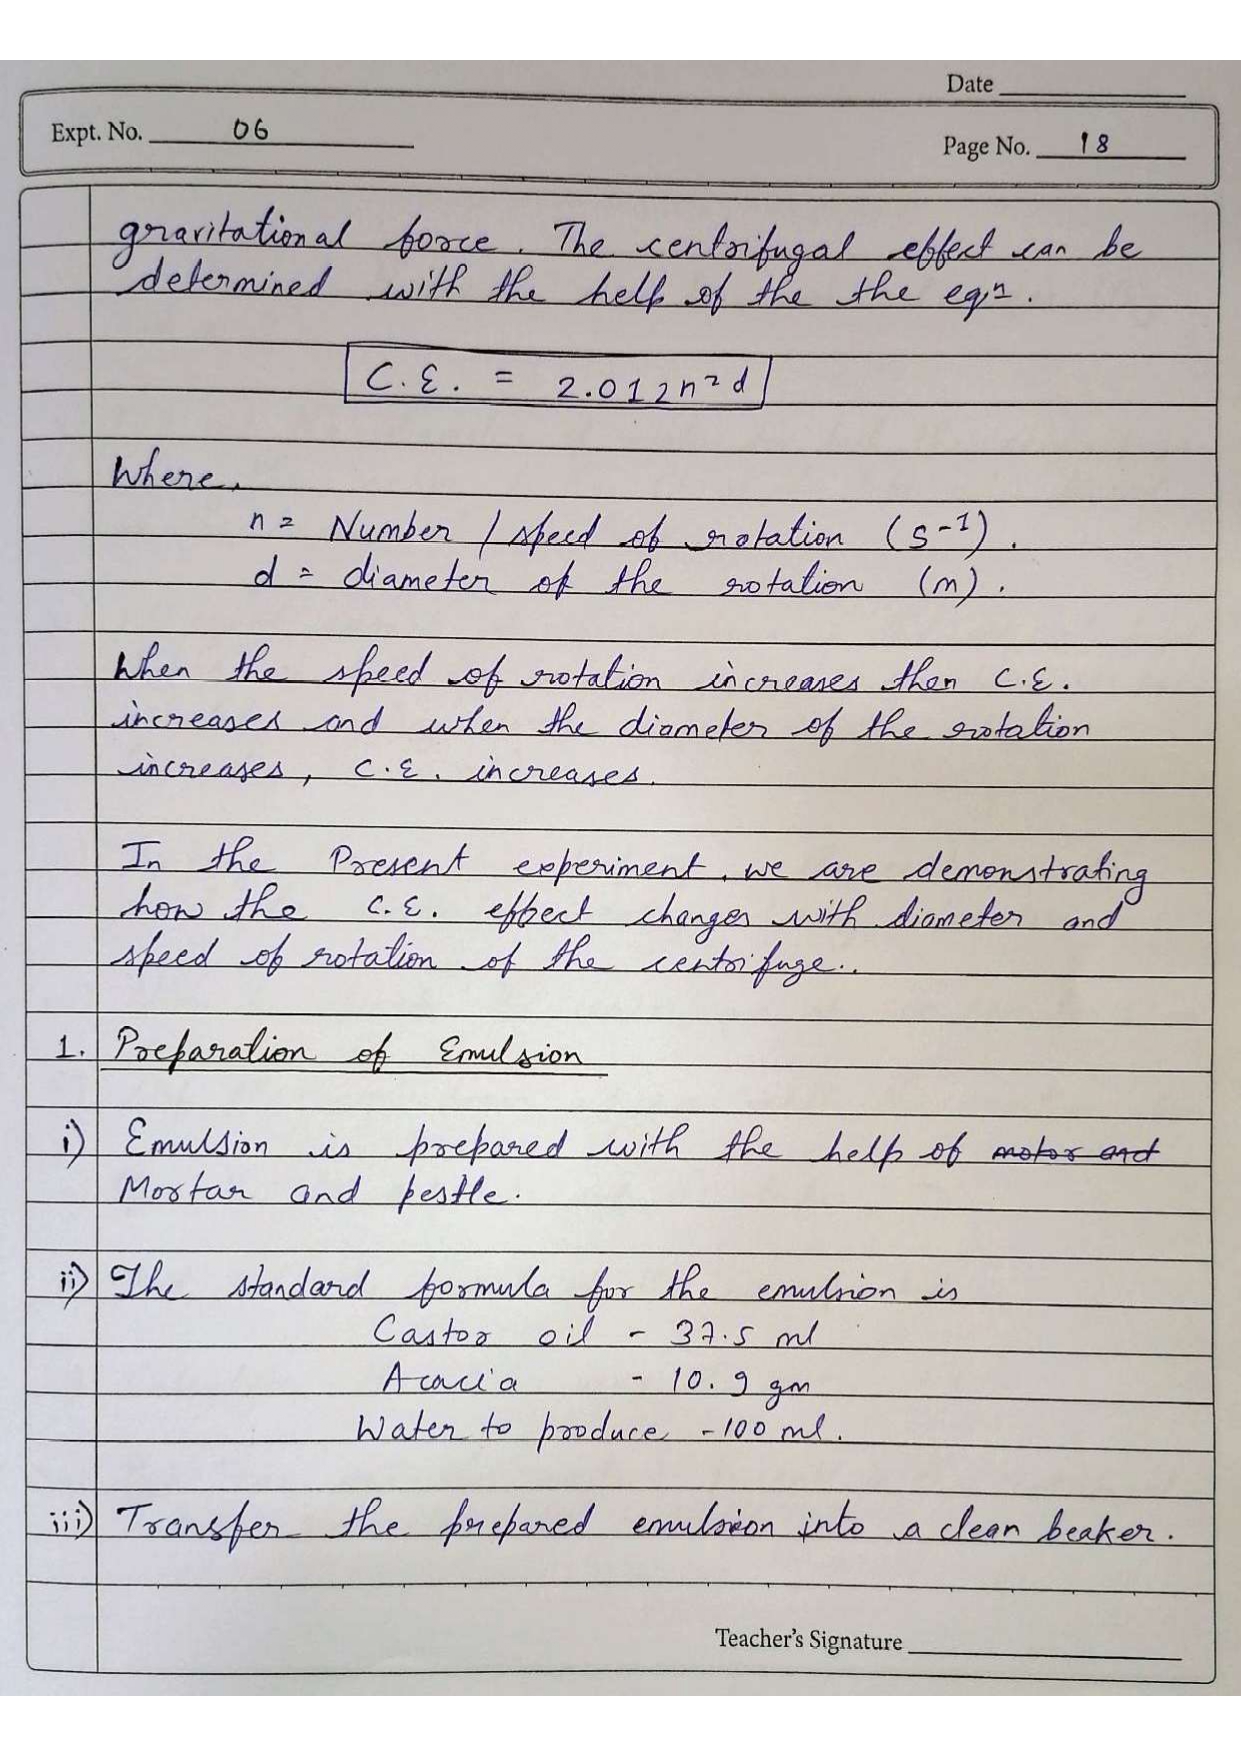 Date
Expt. No. 06
Page No. 18
gravitational force. The centrifugal effect can be
determined with the help of the the eqn.
C.E. = 2.012n²d
Where,
n = Number / speed of rotation (s-1).
d = diameter of the rotation (m).
When the speed of rotation increases then C.E.
increases and when the diameter of the rotation
increases, C.E. increases.
In the Present experiment, we are demonstrating
how the C.E. effect changes with diameter and
speed of rotation of the centrifuge..
1. Preparation of Emulsion
i) Emulsion is prepared with the help of motor and
Mortar and pestle.
ii) The standard formula for the emulsion is
Castor oil - 37.5 ml
Acacia - 10.9 gm
Water to produce - 100 ml.
iii) Transfer the prepared emulsion into a clean beaker.
Teacher's Signature